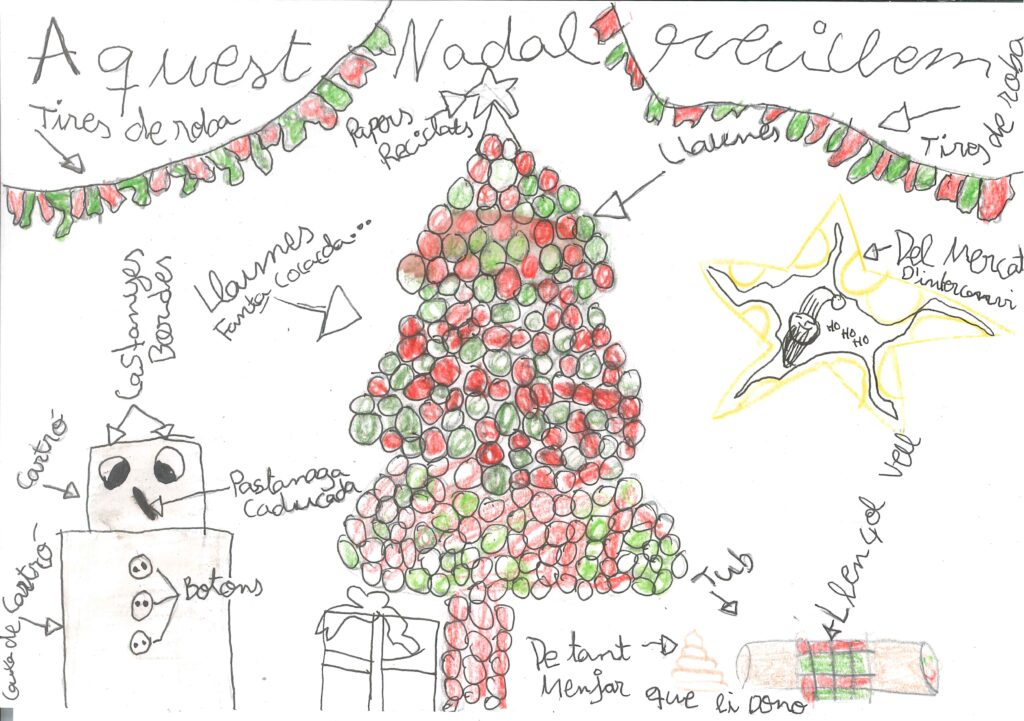 Aquest Nadal reciclem
Tires de roba
Papers
Reciclats
Llaunes
Tires de roba
Llaunes
Fanta Cocacola...
Del Mercat
D'intercanvi
HO
HO
HO
Castanyes
Bordes
Cartró
Pastanaga
Caducada
Caixa de Cartró
Botons
Tub
Llençol Vell
De tant
Menjar que li Dono